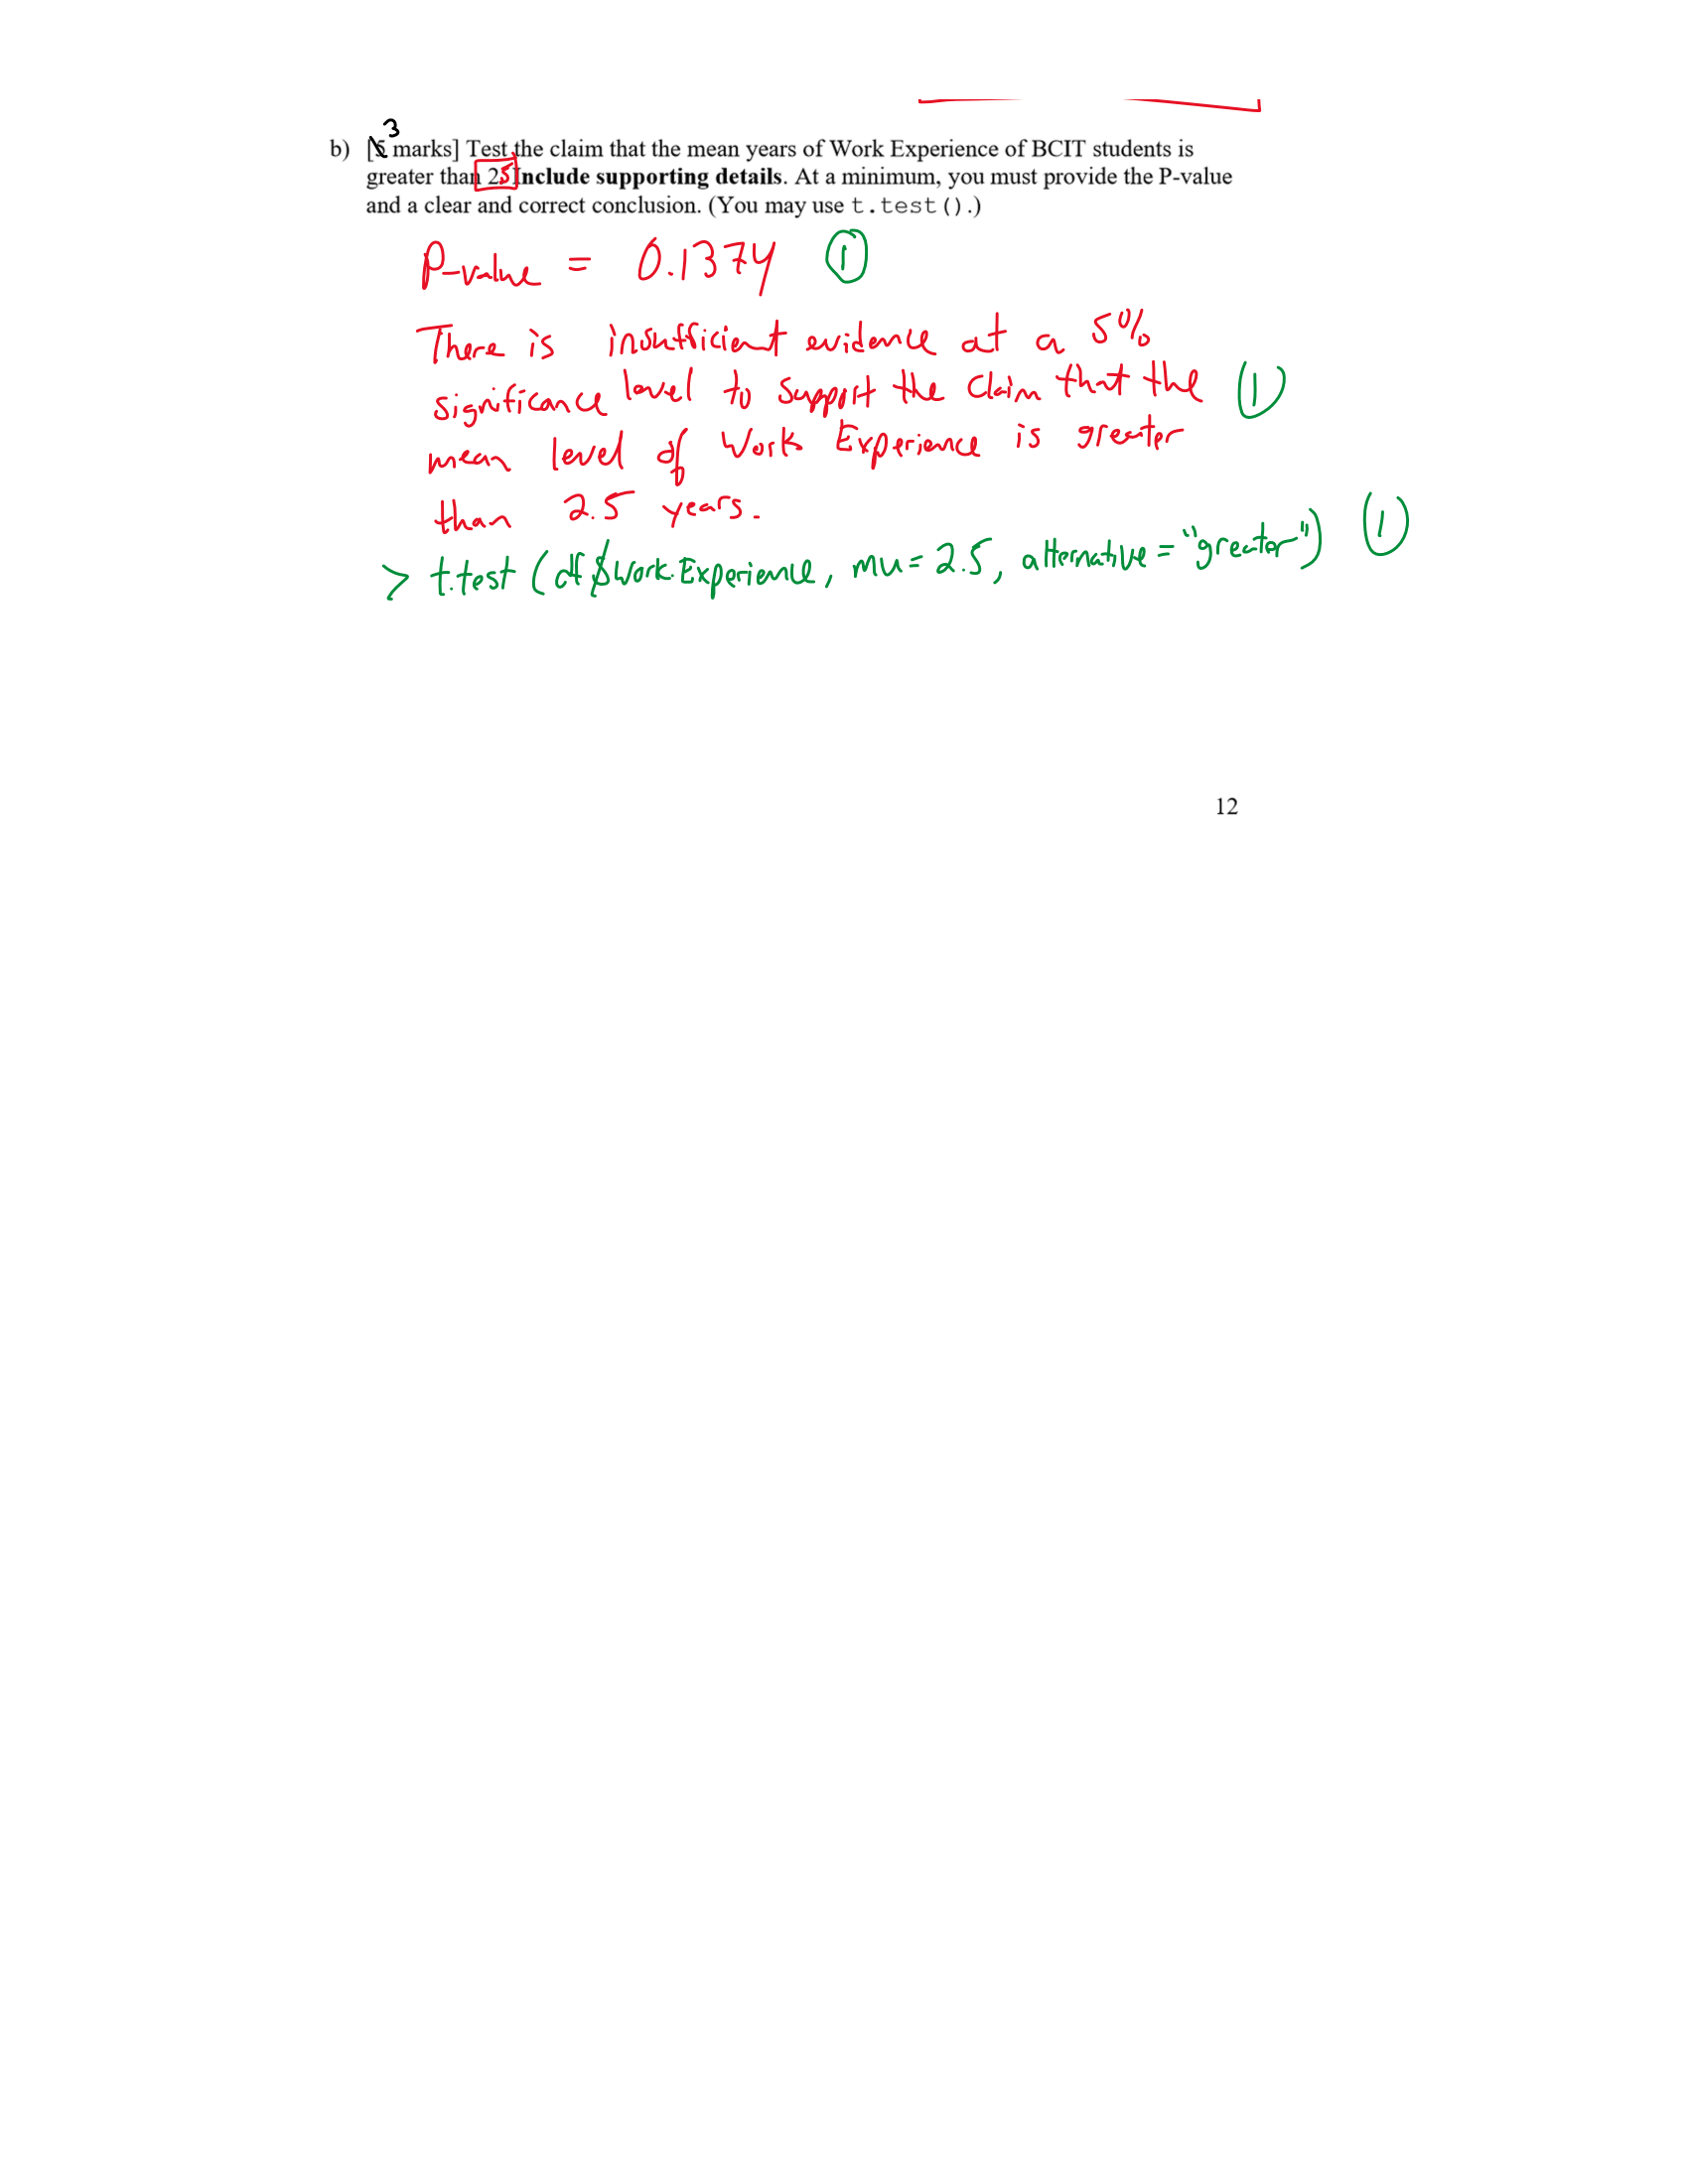 3
b) [5 marks] Test the claim that the mean years of Work Experience of BCIT students is
greater than 2.5 Include supporting details. At a minimum, you must provide the P-value
and a clear and correct conclusion. (You may use t.test().)
P-value = 0.1374 ①
There is insufficient evidence at a 5%
significance level to support the claim that the ①
mean level of Work Experience is greater
than 2.5 years.
> t.test (df$Work.Experience, mu=2.5, alternative="greater") ①
12